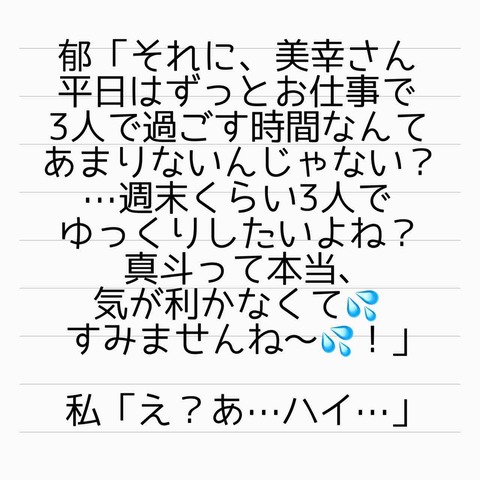 郁「それに、美幸さん
平日はずっとお仕事で
3人で過ごす時間なんて
あまりないんじゃない？
…週末くらい3人で
ゆっくりしたいよね？
真斗って本当、
気が利かなくて💦
すみませんね〜💦！」
私「え？あ…ハイ…」